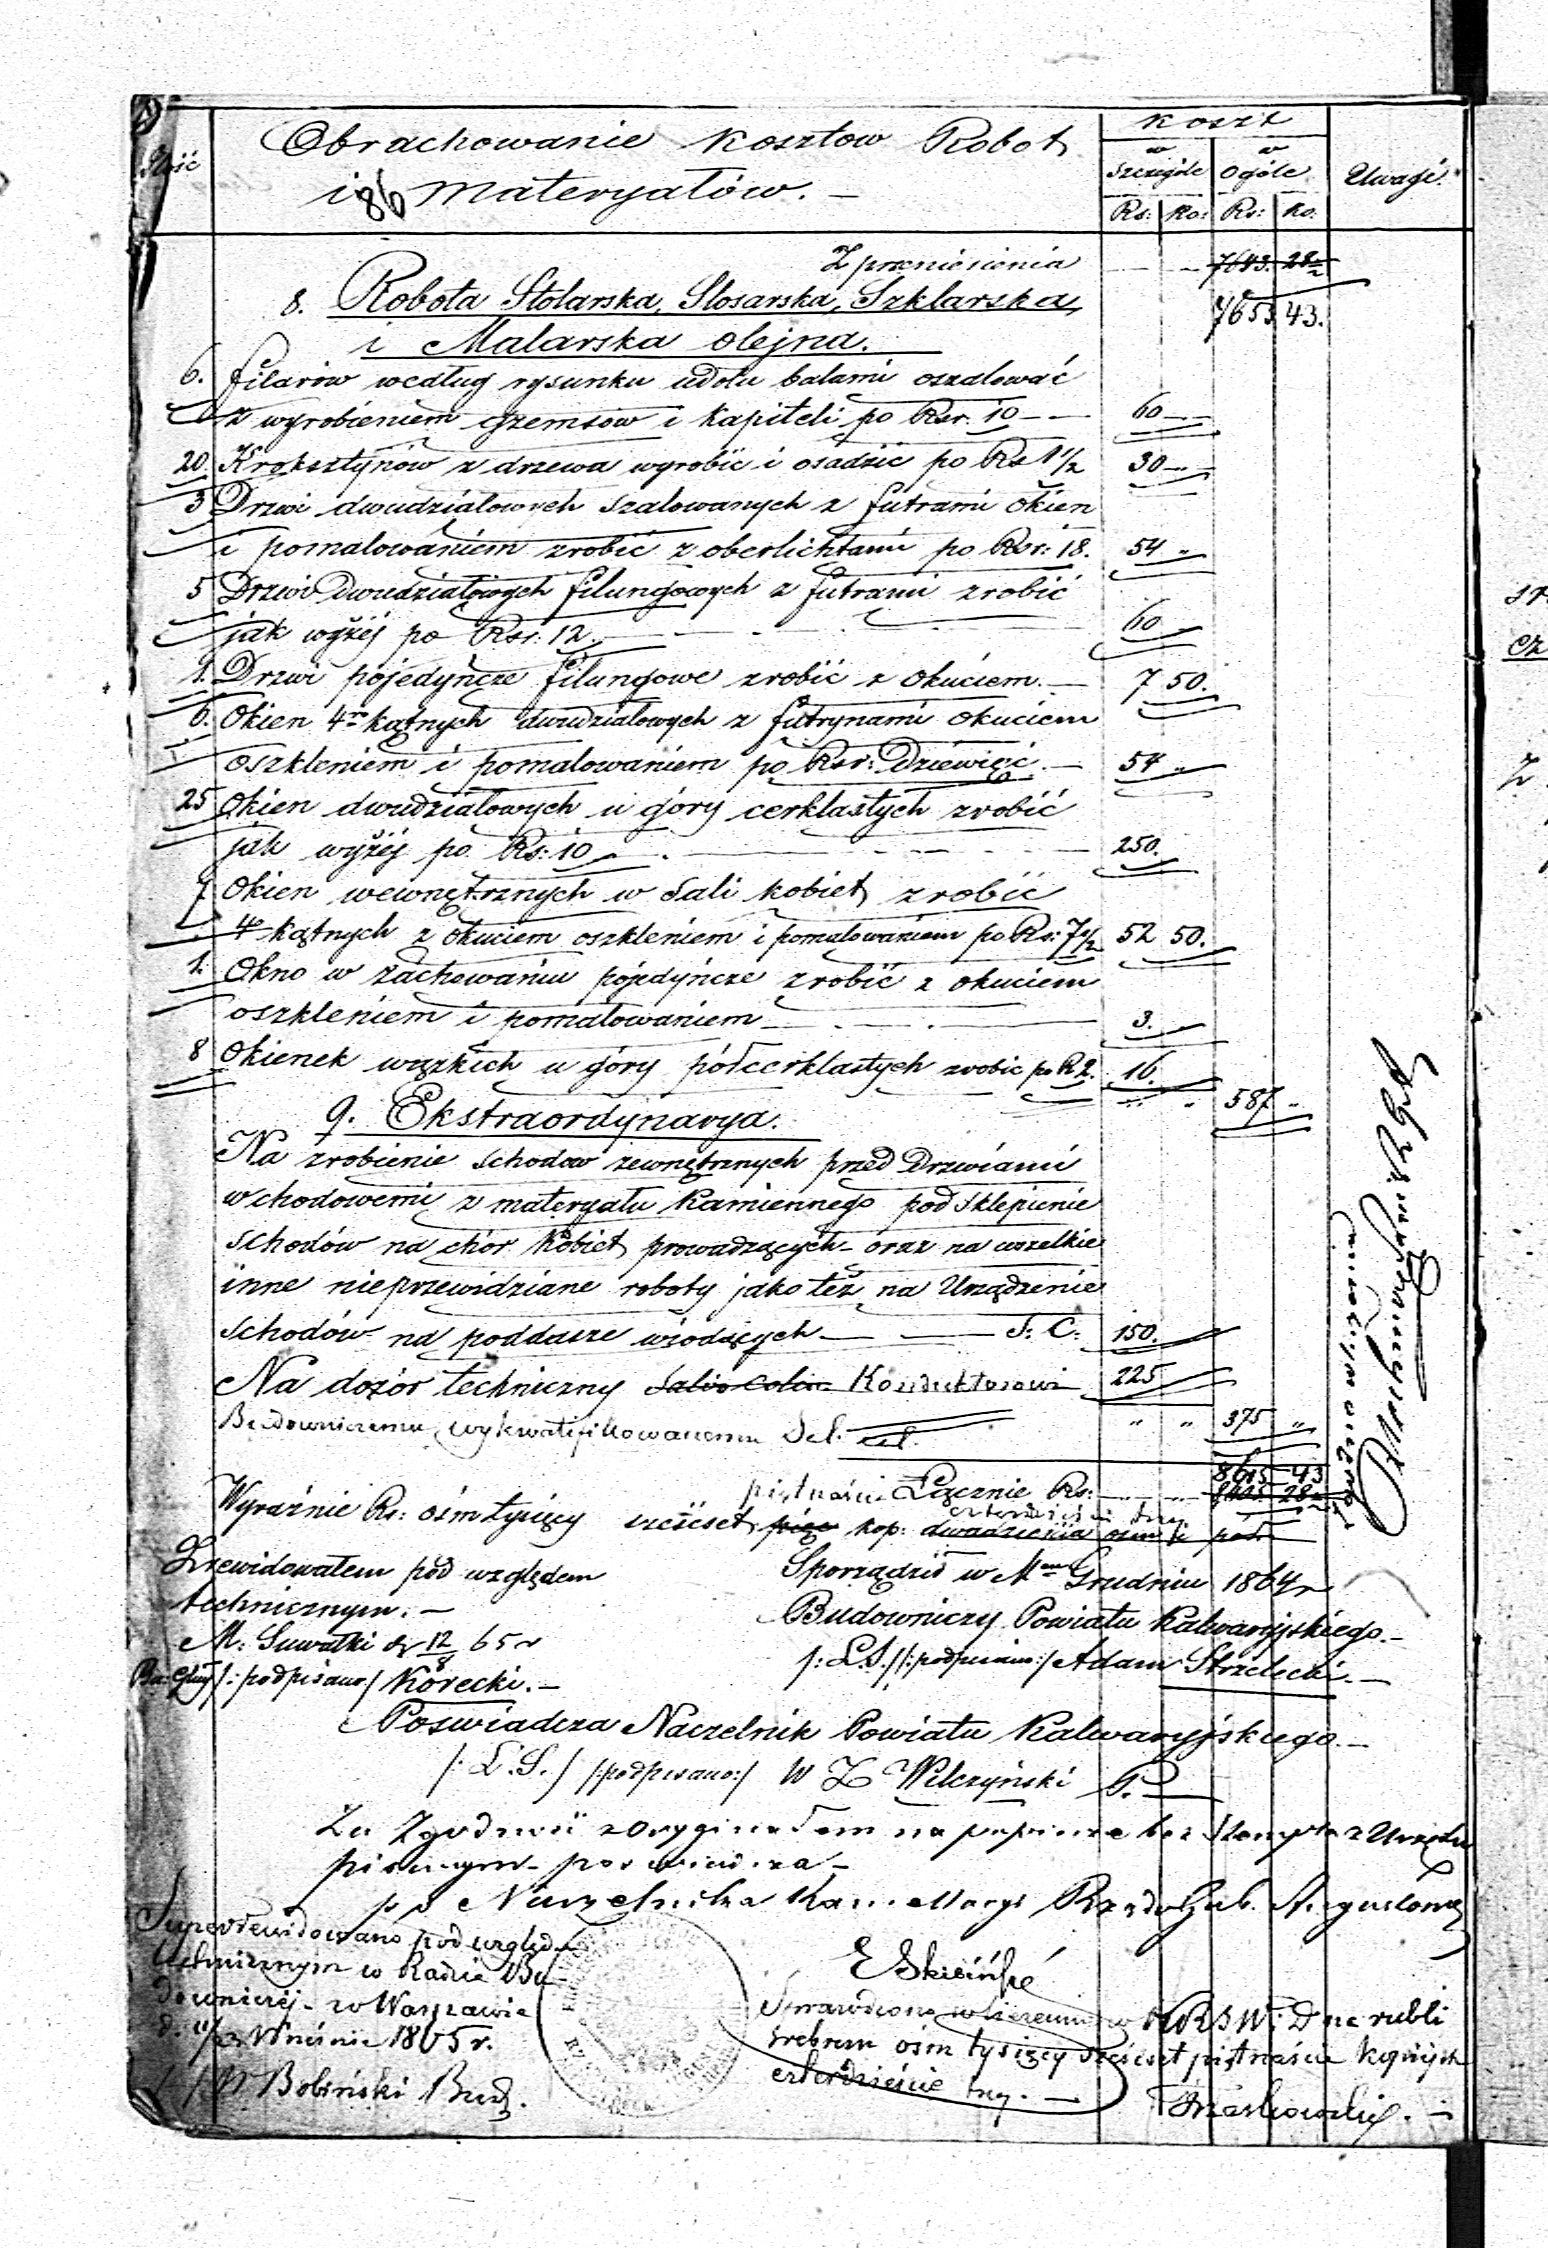 Ilość
Obrachowanie Kosztow Robot
i Materyałów. —
86
Koszt
w Szczególe
w Ogóle
Uwagi.
Rs: Ko: Rs: Ko:
Z przeniesienia 7643. 28½
7653 43.
8. Robota Stolarska, Slosarska, Szklarska,
i Malarska olejna.
6. filarów według rysunku udołu balami oszalować
z wyrobieniem gzemsow i kapiteli po Rsr. 10 — 60 —
20. Kroksztynów z drzewa wyrobić i osadzić po Rs 1½ 30 —
3 Drzwi dwudziałowych szalowanych z futrami okien
i pomalowaniem zrobić z oberlichtami po Rsr: 18. 54 "
5 Drzwi Dwudziałowych filungowych z futrami zrobić
jak wyżéj po Rsr: 12. — 60 —
1. Drzwi pojedyńcze filungowe zrobić z okuciem. — 7 50.
6. Okien 4ro kątnych dwudziałowych z futrynami okuciem
oszkleniem i pomalowaniem po Rsr: Dziewięć. — 54 "
25 Okien dwudziałowych u góry cerklastych zrobić
jak wyżéj po Rs: 10 — 250.
7 Okien wewnętrznych w Sali kobiet zrobić
4o kątnych z okuciem oszkleniem i pomalowaniem po Rs: 7½ 52 50.
1. Okno w zachowaniu pojedyńcze zrobić z okuciem
oszkleniem i pomalowaniem — 3. —
8 Okienek wązkich u góry półcerklastych zrobić po R 2. 16.
" " 587 "
9. Ekstraordynarya.
Na zrobienie schodow zewnętrznych przed Drzwiami
wchodowemi z materyału Kamiennego pod sklepienie
schodów na chór Kobiet prowadzących — oraz na wszelkie
inne nieprzewidziane roboty jako też na Urządzenie
Schodów na poddasze wiodących — S: C: 150.
Na dozór techniczny Salvo Calcu Konduktorowi 225
Budowniczemu wykwalifikowanemu Sel.
" " 375 "
8615 43
piętnaście Łącznie Rs: 28½
czterdzieści trzy
Wyraźnie Rs: ośm tysięcy sześćset pięć kop: dwadzieścia ośm i pół
Zrewidowałem pod względem
technicznym. —
M: Suwałki d 12/8 65 r
/:podpisano/ Korecki. —
Sporządził w Mcu Grudniu 1864 r
Budowniczy Powiatu Kalwaryjskiego. —
/:L.S./ /:podpisano:/ Adam Strzelecki. —
Poswiadcza Naczelnik Powiatu Kalwaryjskiego. —
/:L.S./ /:podpisano:/ W Z Wilczyński
Za Zgodność z oryginałem na papierze bez Stempla z Urzędu
pisanym poswiadcza —
Naczelnika Kancellaryi Rządu Gub. Augustows
Superrewidowano pod względ
technicznym w Radzie Bu-
downiczéj — w Warszawie
Wrześnie 1865 r.
Bobiński Bud.
Sprawdzono w liczeniu w KRSW: D na rubli
srebrem ośm tysięcy sześćset piętnaście kopiejek
czterdzieście trzy. —